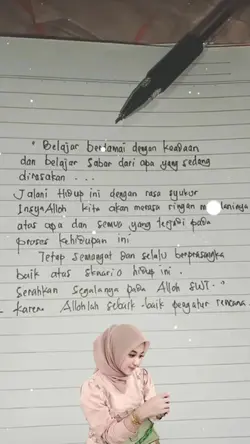 " Belajar berdamai dengan keadaan
dan belajar sabar dari apa yang sedang
dirasakan . . .
Jalani Hidup ini dengan rasa syukur
InsyaAlloh kita akan merasa ringan
atas apa dan semua yang terjadi pada
proses kehidupan ini
Tetap semangat dan selalu berprasangka
baik atas skenario hidup ini .
Serahkan segalanya pada Alloh SWT. "
karena Allohlah sebaik-baik pengatur rencana.